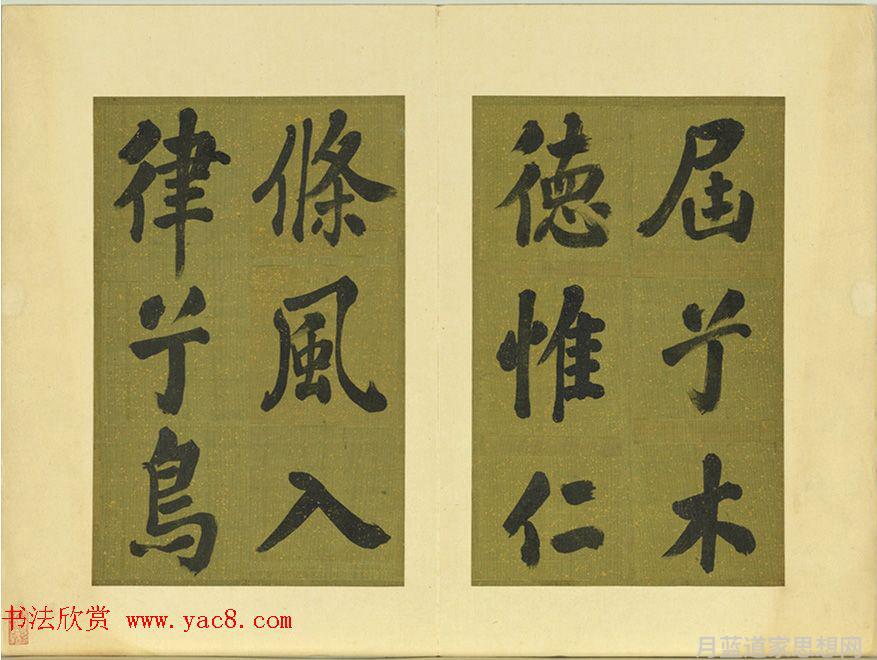 屆兮木
德惟仁
條風入
律兮鳥
书法欣赏 www.yac8.com
月蓝道家思想网